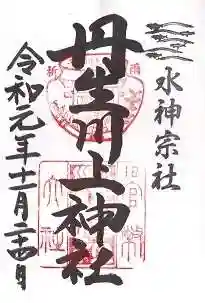 水神宗社
丹生川上神社
令和元年十一月二十四日